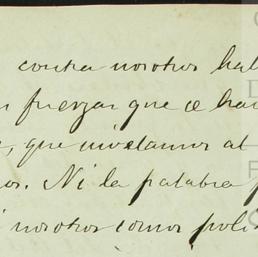 contra nosotros hal
fuerzas que e ha
, que invitamos al
os. Ni la palabra p
i nosotros somos poli